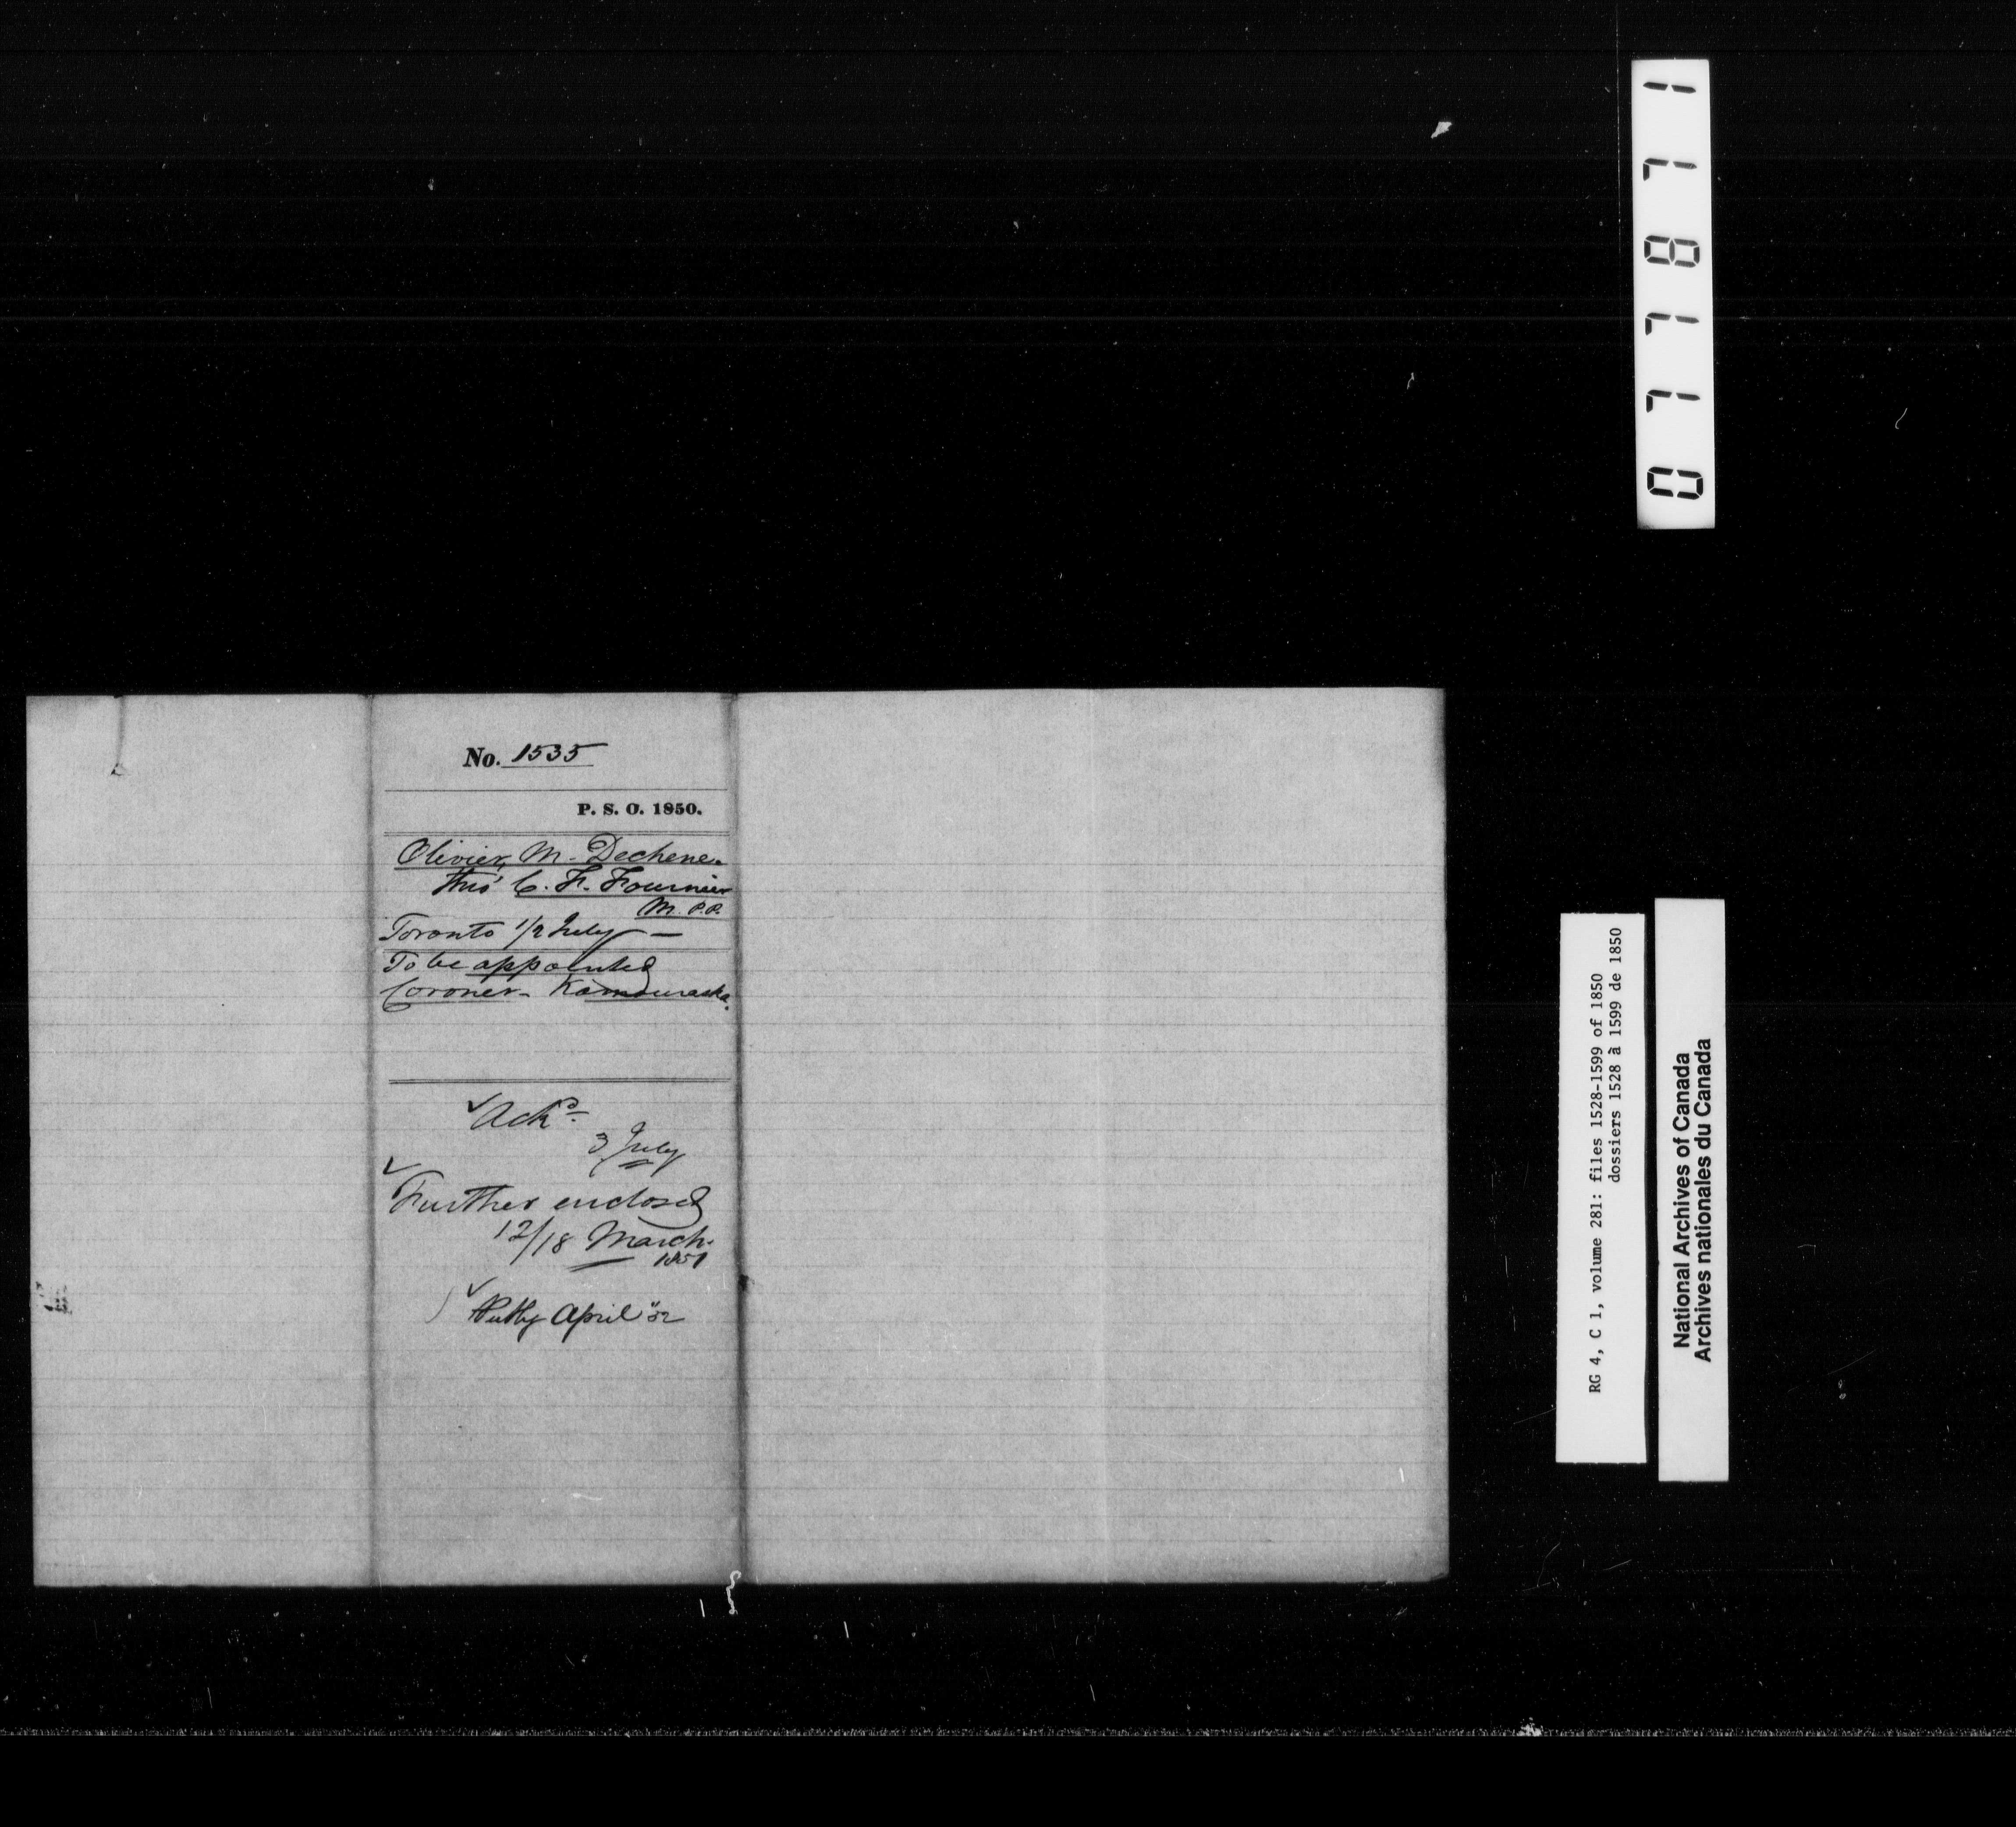 No. 1535
P. S. O. 1850.
Olivier, M. Dechene.
thro' C. F. Fournier
M. P. P.
Toronto 1/2 July —
To be appointed
Coroner - Kamouraska.
Ackd.
3 July
Further enclosed
12/18 March.
1851
April "52
077871
RG 4, C 1, volume 281: files 1528-1599 of 1850
dossiers 1528 à 1599 de 1850
National Archives of Canada
Archives nationales du Canada